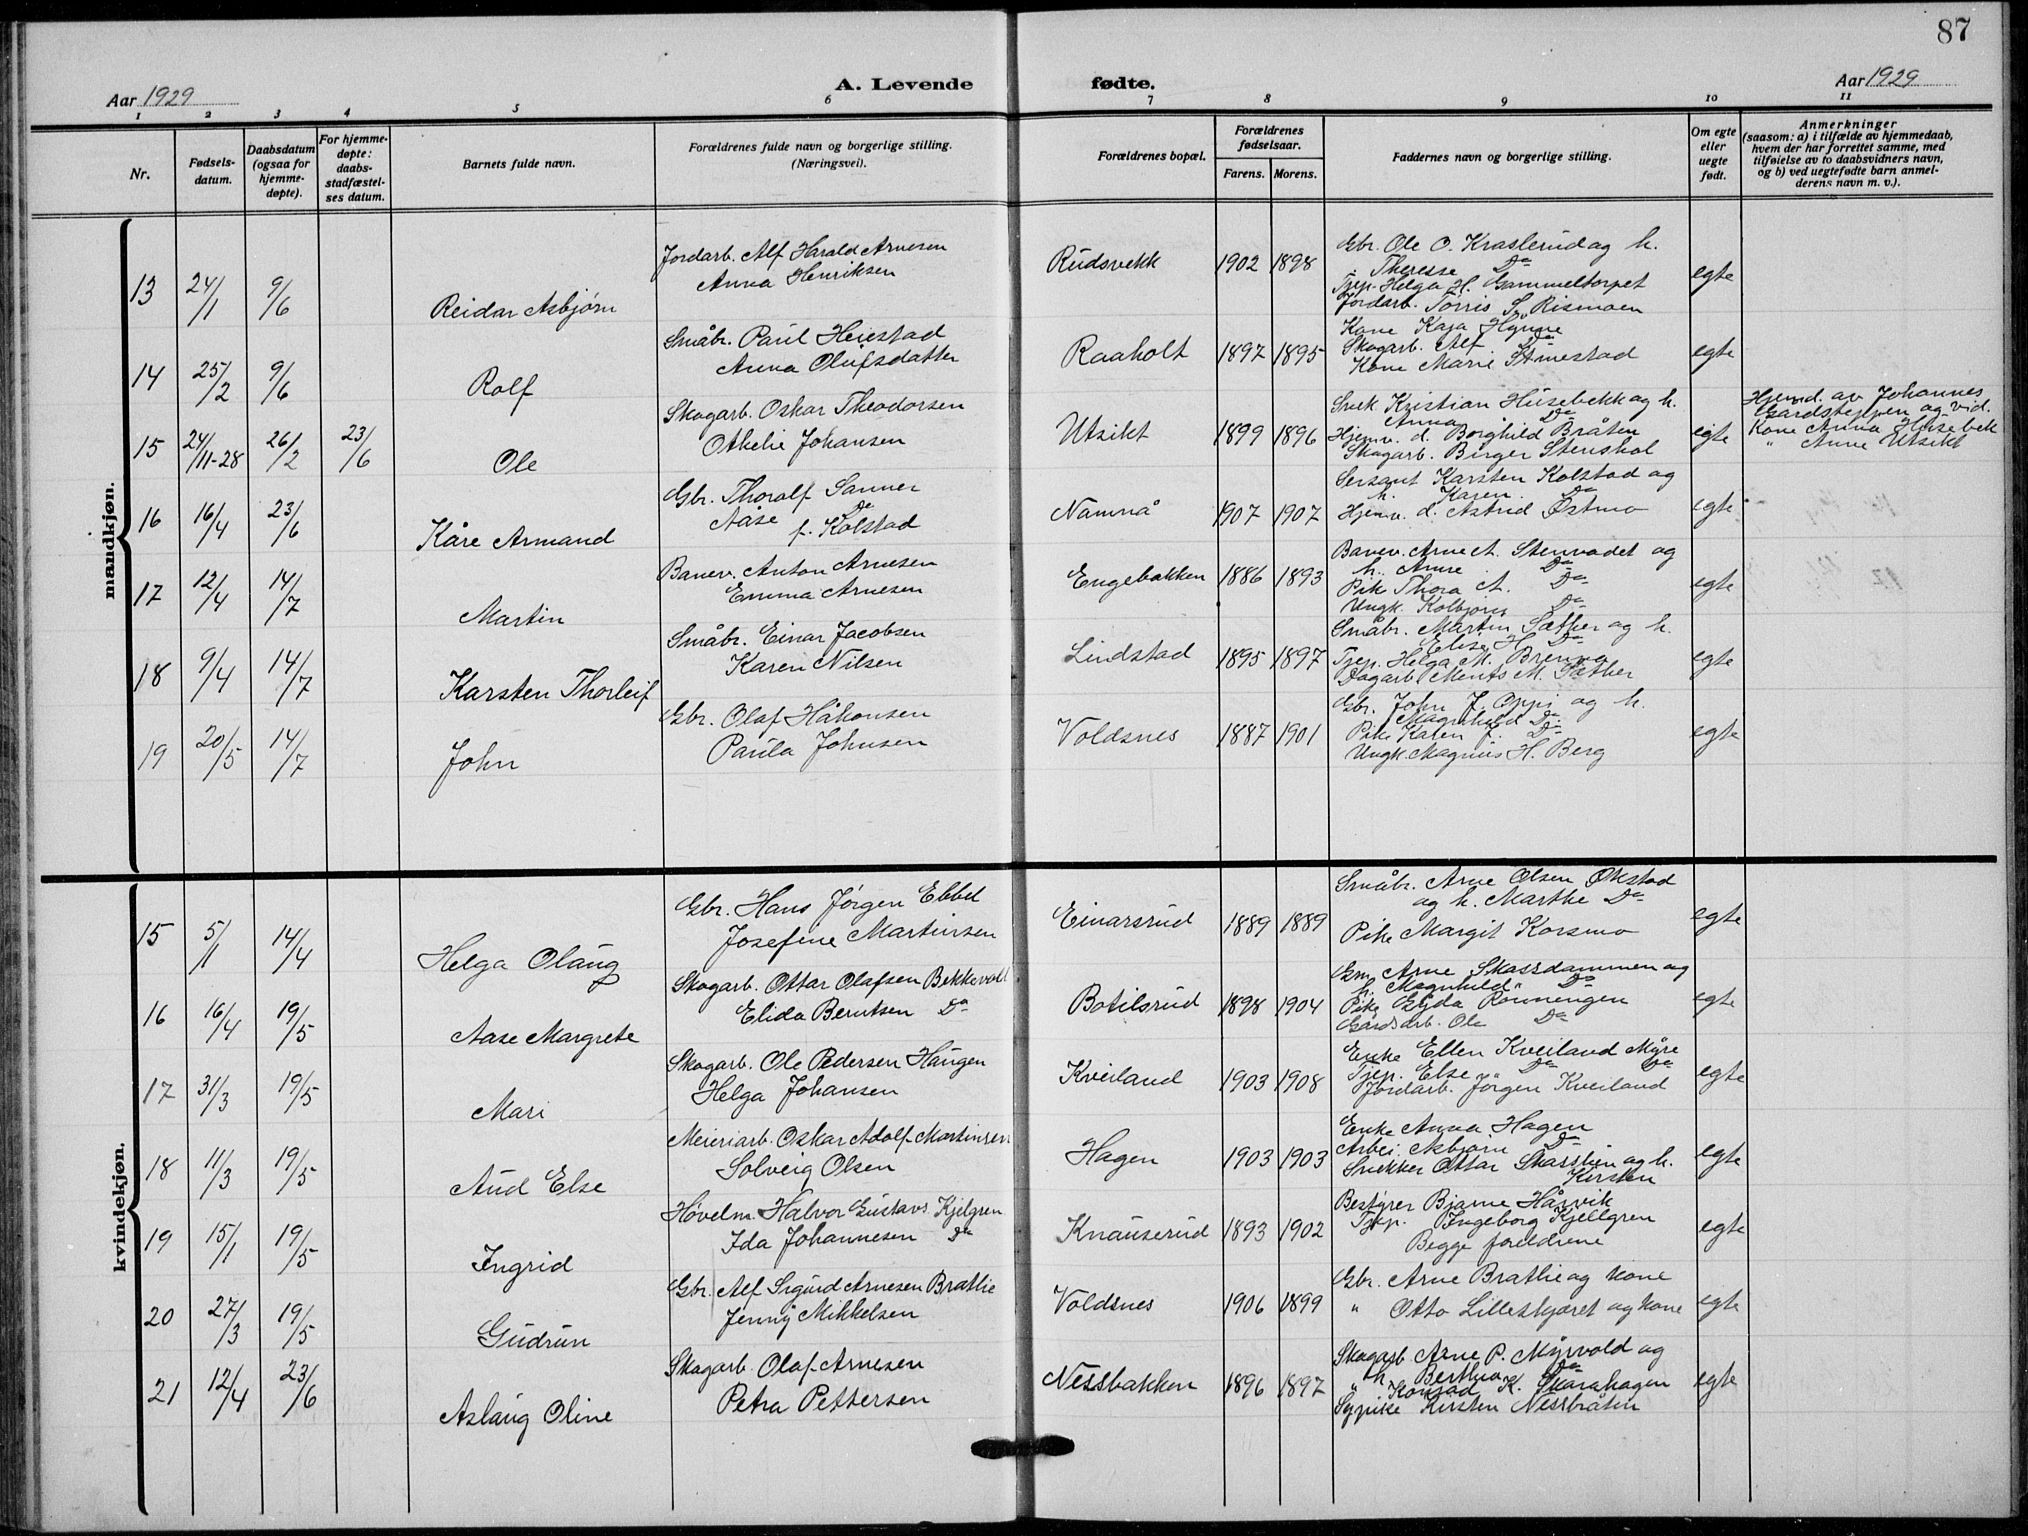 87
A. Levende fødte.
Aar 1929
Aar 1929
1 2 3 4 5 6 7 8 9 10 11
Nr.
Fødsels-
datum.
Daabsdatum
(ogsaa for
hjemme-
døpte).
For hjemme-
døpte:
daabs-
stadfæstel-
ses datum.
Barnets fulde navn.
Forældrenes fulde navn og borgerlige stilling.
(Næringsvei).
Forældrenes bopæl.
Forældrenes
fødselsaar.
Farens. Morens.
Faddernes navn og borgerlige stilling.
Om egte
eller
uegte
født.
Anmerkninger
(saasom: a) i tilfælde av hjemmedaab,
hvem der har forrettet samme, med
tilføielse av to daabsvidners navn,
og b) ved uegtefødte barn anmel-
derens navn m. v.).
mandkjøn.
13 24/1 9/6 Reidar Asbjørn
Jordarb. Alf Harald Arnesen
Anna Henriksen
Rudsvekk 1902 1898
Gbr. Ole O. Kraslerud og h.
Therese Do
Tjp. Helga H. Gammeltorpet
Jordarb. Torris S. Rismoen
egte
14 25/2 9/6 Rolf
Småbr. Paul Heiestad
Anna Olufsdatter
Raaholt 1897 1895
Kone Kaja Hynne
Skogarb. Alf Do
Kone Marie Stinestad
egte
15 24/11-28 26/2 23/6 Ole
Skogarb. Oskar Theodorsen
Othelie Johansen
Utsikt 1899 1896
Snek Kristian Husebekk og h.
Anna Do
Hjemv. d. Borghild Bråten
Skogarb. Birger Stenshol
egte
Hjemd. av Johannes
Gardsteppen og vid.
Kone Anna Husebek
" Anne Utsikt
16 16/4 23/6 Kåre Armand
Gbr. Thoralf Sanner
Aase Do
f. Kolstad
Namnå 1907 1907
Sersant Karsten Kolstad og
h. Karen Do
Hjemv. d. Astrid Østmo
egte
17 12/4 14/7 Martin
Banev. Anton Arnesen
Emma Arnesen
Engebakken 1886 1893
Banev. Arne A. Stenvadet og
h. Anne Do
Pik Thora A. Do
Ungk. Kolbjørn Do
egte
18 9/4 14/7 Karsten Thorleif
Småbr. Einar Jacobsen
Karen Nilsen
Lindstad 1895 1897
Småbr. Martin Sæther og h.
Elise H. Do
Tjep. Helga M. Brenna
Dagarb. Ments M. Sæther
egte
19 20/5 14/7 John
Gbr. Olaf Håkonsen
Paula Johnsen
Voldsnes 1887 1901
Gbr. John J. Oppi og h.
Magnhild Do
Pike Karen J. Do
Ungk. Magnus H. Berg
egte
kvindekjøn.
15 5/1 14/4 Helga Olaug
Gbr. Hans Jørgen Ebbel
Josefine Martinsen
Einarsrud 1889 1889
Småbr. Arne Olsen Økstad
og h. Marthe Do
Pike Margit Korsmo
egte
16 16/4 19/5 Aase Margrete
Skogarb. Ottar Olafsen Bekkevold
Elida Berntsen Do
Botilsrud 1898 1904
Gm. Arne Skassdammen og
h. Magnhild Do
Pike Gyda Rønnengen
Gårdsarb. Ole Do
egte
17 31/3 19/5 Mari
Skogarb. Ole Pedersen Haugen
Helga Johansen
Kveiland 1903 1908
Enke Ellen Kveiland Myre
Tjep. Else Do Do
Jordarb. Jörgen Kveiland
egte
18 11/3 19/5 Aud Else
Meieriarb. Oskar Adolf Martinsen
Solveig Olsen
Hagen 1903 1903
Enke Anna Hagen
Arbei. Asbjørn Do
Snekker Ottar Skasslien og h.
Kirsten
egte
19 15/1 19/5 Ingrid
Høvelm. Halvor Gustavs. Kjelgren
Ida Johannesen Do
Knauserud 1893 1902
Bestyrer Bjarne Hårvik
Tjep. Ingeborg Kjellgren
Begge foreldrene
egte
20 27/3 19/5 Gudrun
Gbr. Alf Sigurd Arnesen Bratlie
Jenny Mikkelsen
Voldsnes 1906 1899
Gbr. Arne Bratlie og kone
" Otto Lilleskjæret og kone
egte
21 12/4 23/6 Aslaug Oline
Skogarb. Olaf Arnesen
Petra Pettersen
Nessbakken 1896 1897
Skogarb Arne P. Myrvold og
h Berthea Do
" Konrad K. Skarahagen
Sypike Kirsten Nessbråten
egte